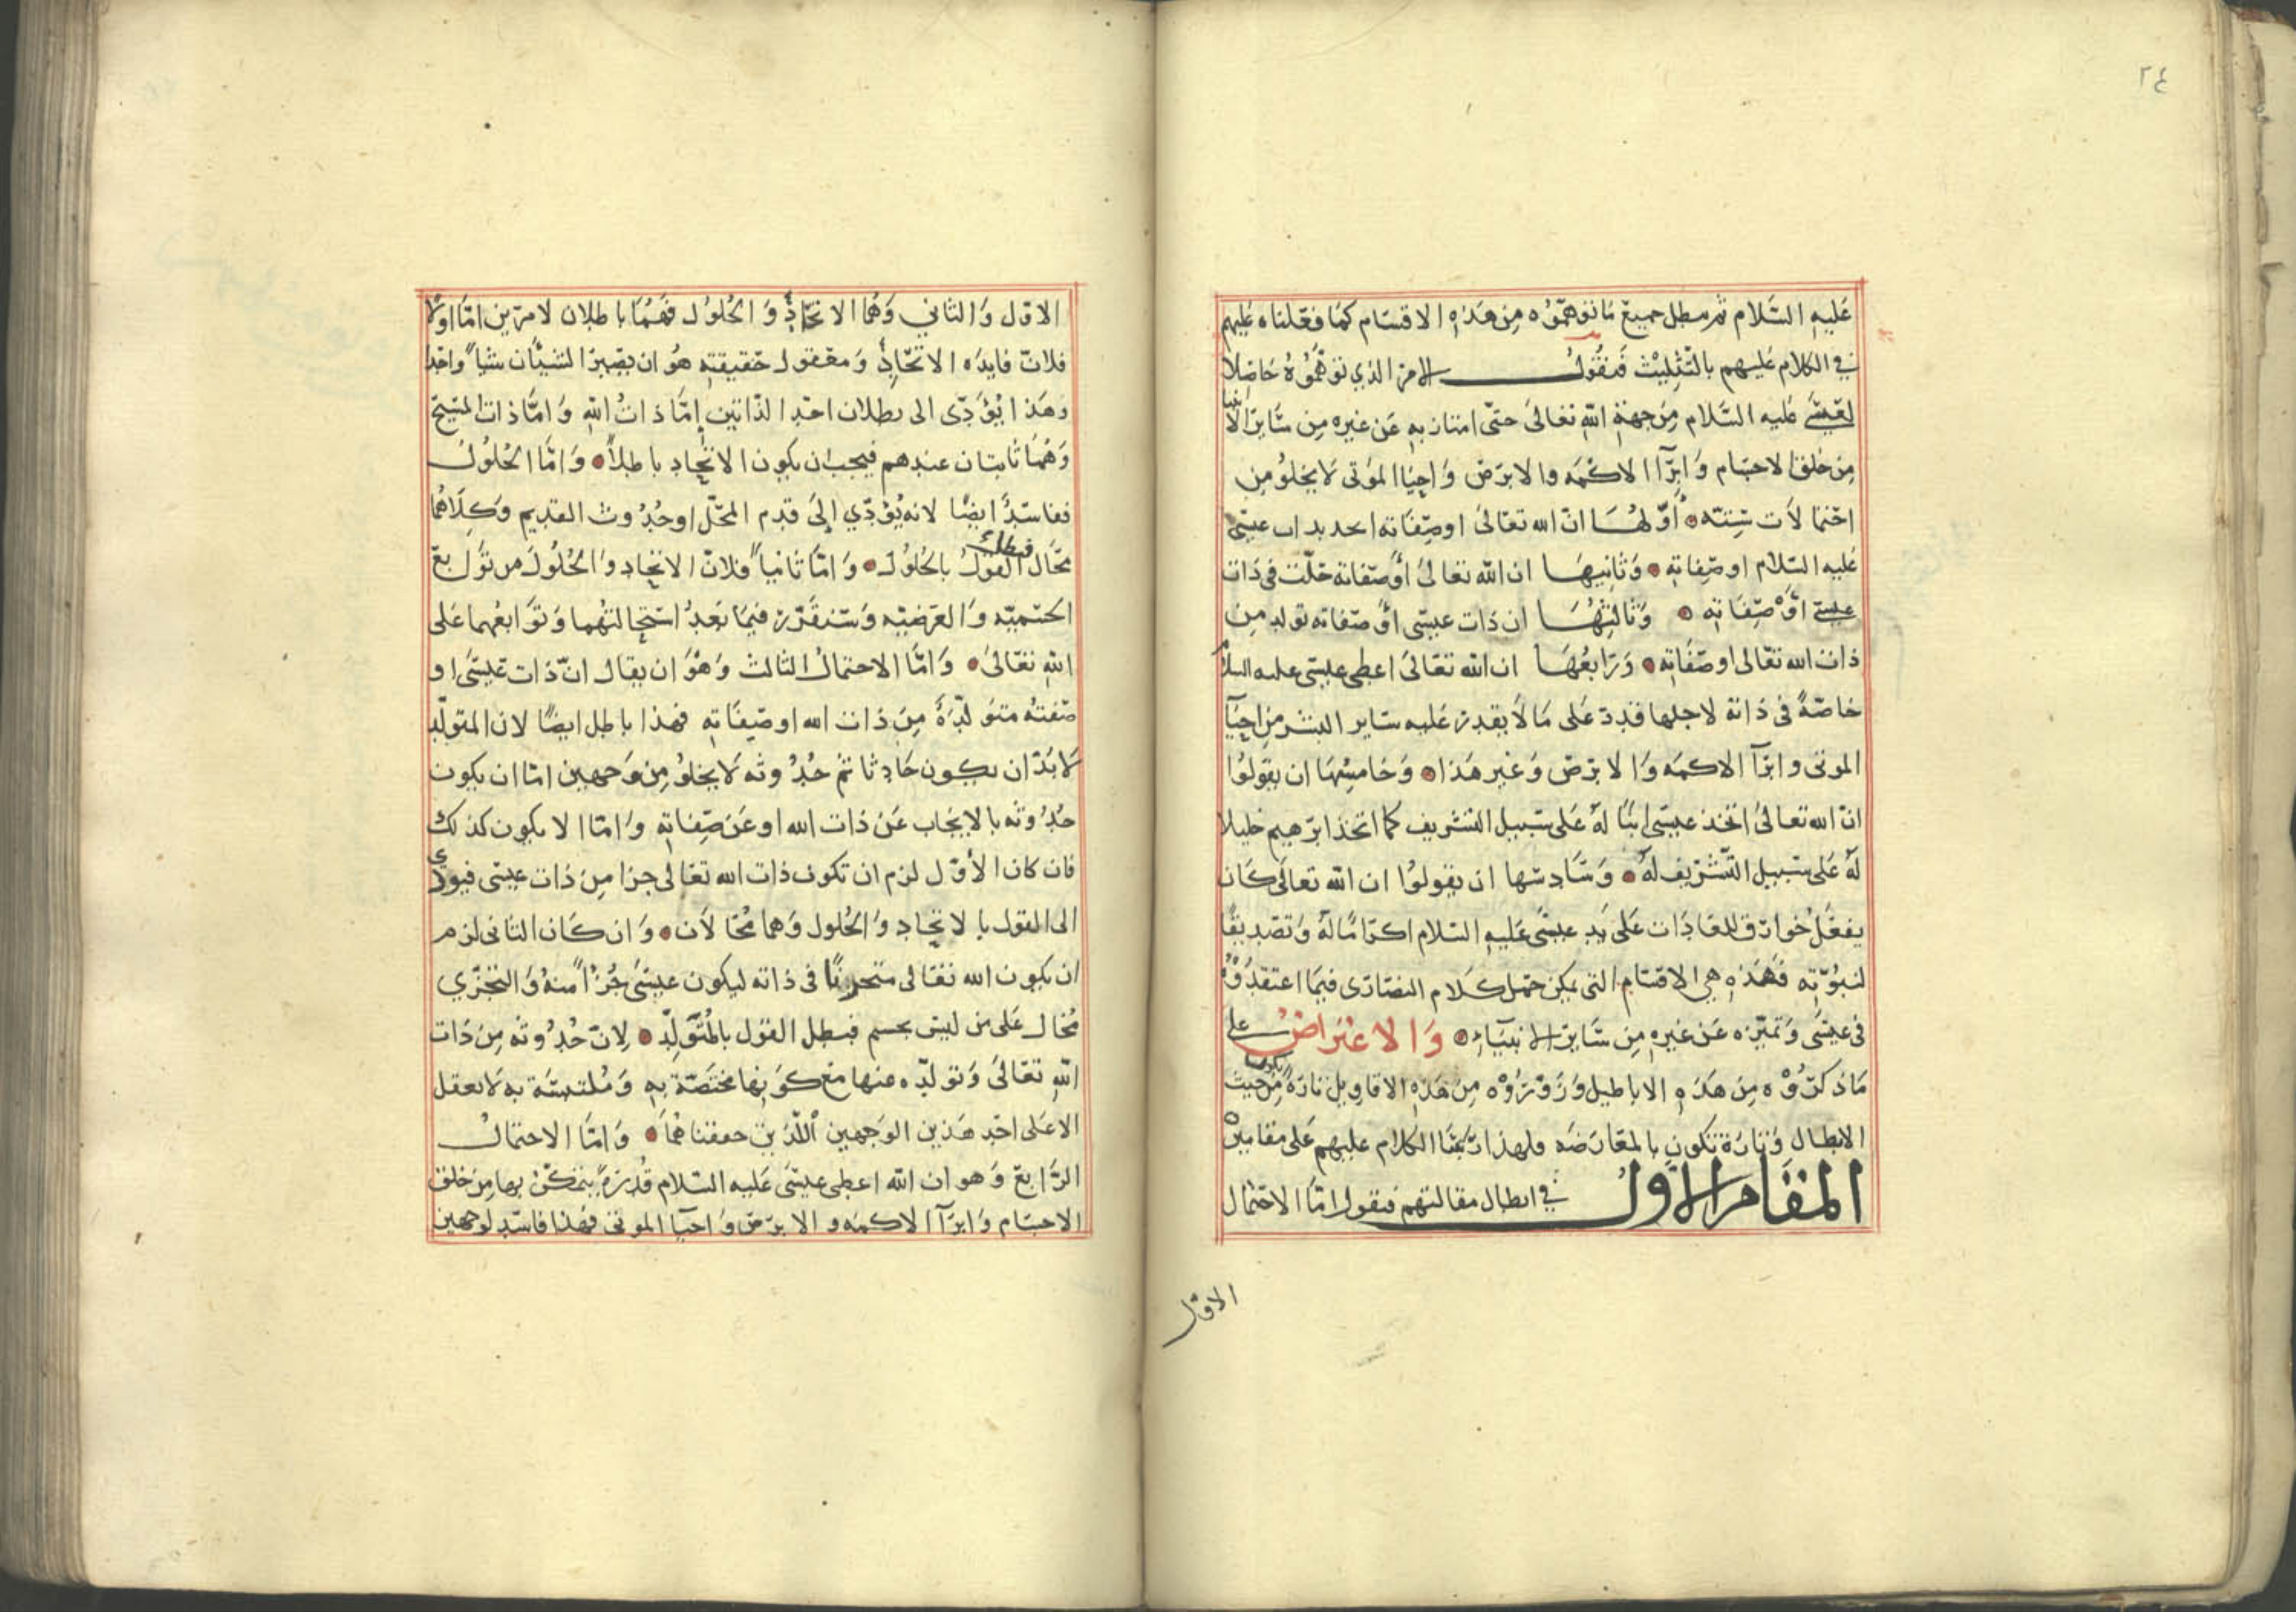 ٢٤
عليه السلام ثم نبطل جميع ما توهموه من هذه الاقسام كما فعلناه عليهم
في الكلام عليهم بالتثليث فنقول الامر الذي توهموه حاصلا
لعيسى عليه السلام من جهة الله تعالى حتى امتاز به عن غيره من ساير الانبيا
من خلق الاجسام وابرآ الاكمه والابرص واحيا الموتى لا يخلو من
احتمالات ستة اولها ان الله تعالى او صفاته اتحد بذات عيسى
عليه السلام او صفاته وثانيها ان الله تعالى او صفاته حلت في ذات
عيسى او صفاته وثالثها ان ذات عيسى او صفاته تولد من
ذات الله تعالى او صفاته ورابعها ان الله تعالى اعطى عيسى عليه السلام
خاصة في ذاته لاجلها قدر على ما لا يقدر عليه ساير البشر من احيآ
الموتى وابرآ الاكمه والابرص وغير هذا وخامسها ان يقولوا
ان الله تعالى اتخذ عيسى ابنا له على سبيل التشريف كما اتخذ ابرهيم خليلا
له على سبيل التشريف له وسادسها ان يقولوا ان الله تعالى كان
يفعل خوارق للعادات على يد عيسى عليه السلام اكراما له وتصديقا
لنبوته فهذه هي الاقسام التي يمكن حمل كلام النصارى فيما اعتقدوه
في عيسى وتميزه عن غيره من ساير الانبياء والاعتراض على
ما ذكروه من هذه الاباطيل وزوروه من هذه الاقاويل تارة يكون من حيث
الابطال وتارة تكون بالمعارضه ولهذا رتبنا الكلام عليهم على مقامين
المقام الاول في ابطال مقالتهم فنقول اما الاحتمال
الاول
الاول والثاني وهما الاتحاد والحلول فهما باطلان لامرين اما اولا
فلان فايده الاتحاد ومعقول حقيقته هو ان يصير الشيئان شيا واحدا
وهذا يؤدى الى بطلان احد الذاتين اما ذات الله واما ذات المسيح
وهما ثابتان عندهم فيجب ان يكون الاتحاد باطلا واما الحلول
ففاسد ايضا لانه يؤدي الى قدم المحل او حدوث القديم وكلاهما
محال فبطل القول بالحلول واما ثانيا فلان الاتحاد والحلول من توابع
الجسميه والعرضيه وسنقرر فيما بعد استحالتهما وتوابعهما على
الله تعالى واما الاحتمال الثالث وهو ان يقال ان ذات عيسى او
صفته متولدة من ذات الله او صفاته فهذا باطل ايضا لان المتولد
لا بد ان يكون حادثا ثم حدوثه لا يخلو من وجهين اما ان يكون
حدوثه بالايجاب عن ذات الله او عن صفاته واما الا يكون كذلك
فان كان الاول لزم ان تكون ذات الله تعالى جزا من ذات عيسى فيودي
الى القول بالاتحاد والحلول وهما محالان وان كان الثاني لزم
ان يكون الله تعالى متجزئا في ذاته ليكون عيسى جزءا منه والتجزي
محال على من ليس بجسم فبطل القول بالتولد لان حدوثه من ذات
الله تعالى وتولده عنها مع كونها مختصة به وملتبسة به لا يعقل
الا على احد هذين الوجهين اللذين حققناهما واما الاحتمال
الرابع وهو ان الله اعطى عيسى عليه السلام قدرة يتمكن بها من خلق
الاجسام وابرآ الاكمه والابرص واحيآ الموتى فهذا فاسد لوجهين